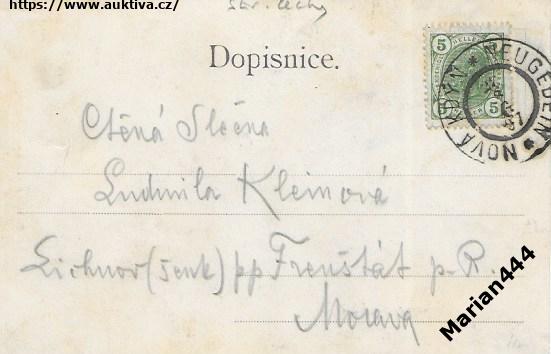 https://www.auktiva.cz/
Stř. Čechy
Dopisnice.
5 5
5 5
NEUGEDEIN * NOVÁ KDYNĚ *
Ctěná Slečna
Ludmila Kleinová
Lichnov (šenk) pp Frenštát p. R.
Morava
Marian444